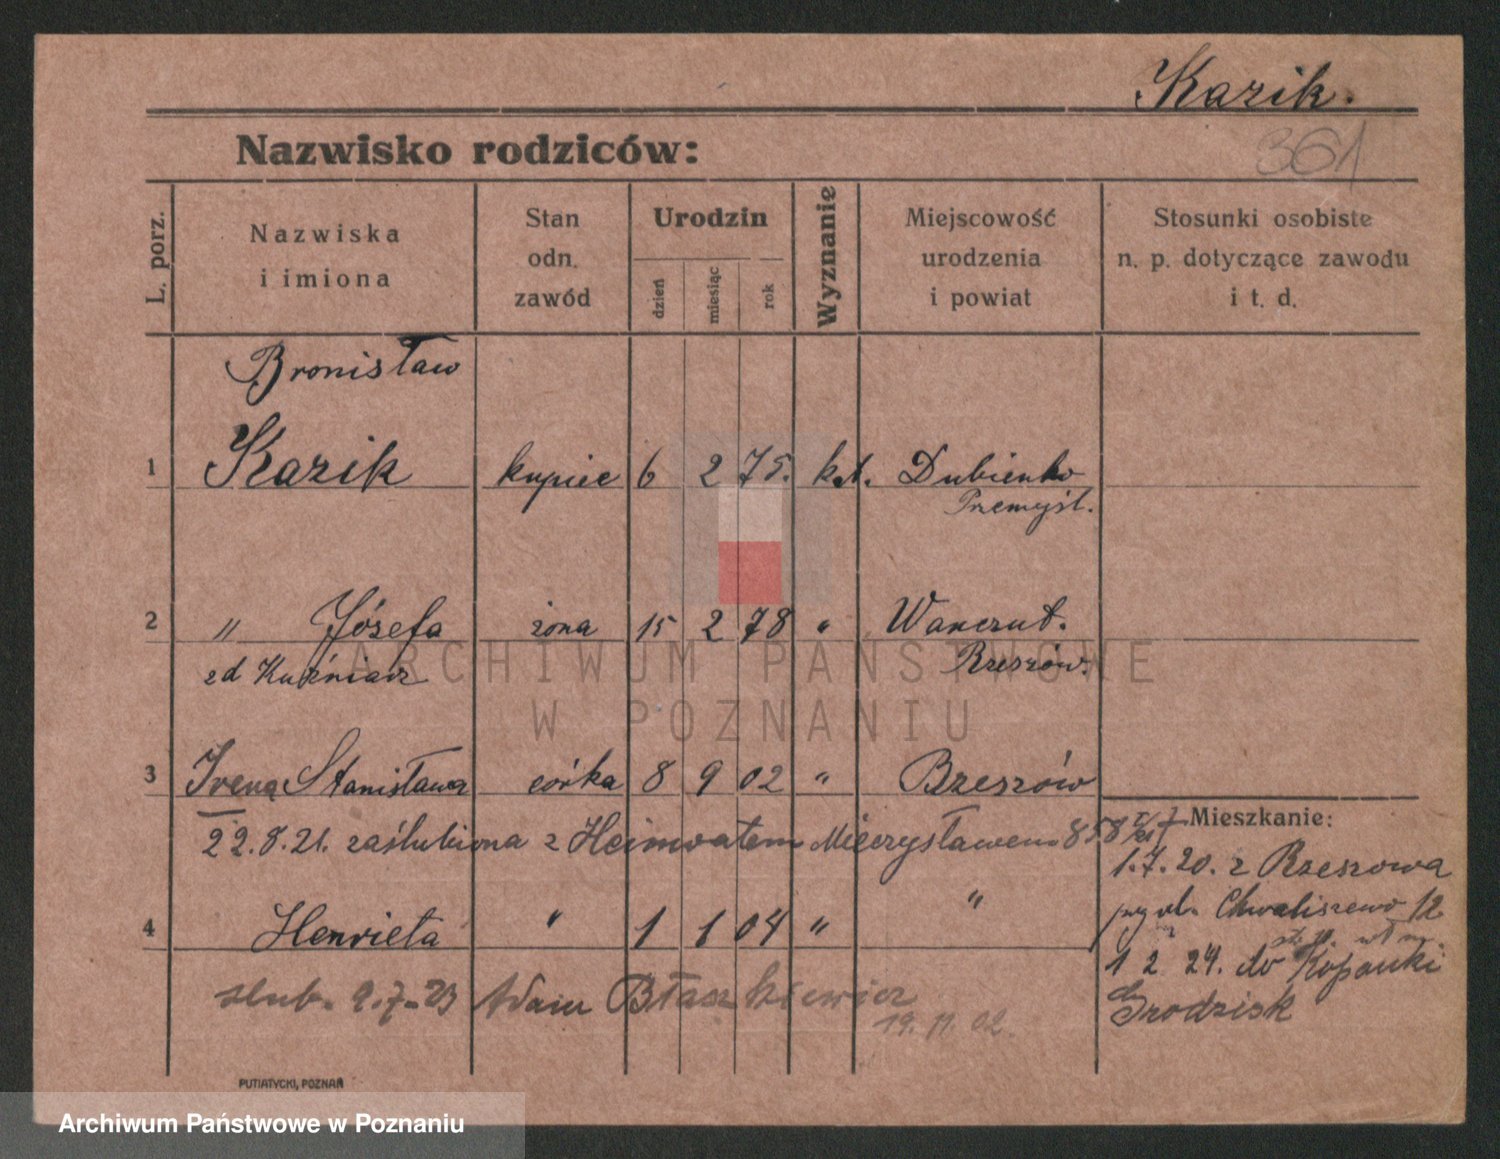 Kazik.
361
Nazwisko rodziców:
L. porz.
Nazwiska
i imiona
Stan
odn.
zawód
Urodzin
dzień
miesiąc
rok
Wyznanie
Miejscowość
urodzenia
i powiat
Stosunki osobiste
n. p. dotyczące zawodu
i t. d.
Bronisław
1 Kazik kupiec 6 2 75. kat. Dubienko
Przemyśl.
2 " Józefa żona 15 2 78 " Wanczut.
zd Kuźniarz Rzeszów.
3 Irena Stanisława córka 8 9 02 " Rzeszów
22.8.21. zaślubiona z Heimvatem Mieczysławem 858
4 Henrieta " 1 1 04 " "
slub. 9.7-23 Adam Błaszkiewicz
19. 11. 02.
Mieszkanie:
1.7.20. z Rzeszowa
Chwaliszewo 12
1 2 24. do Kopanki
Grodzisk
PUTIATYCKI, POZNAŃ
ARCHIWUM PAŃSTWOWE
W POZNANIU
Archiwum Państwowe w Poznaniu